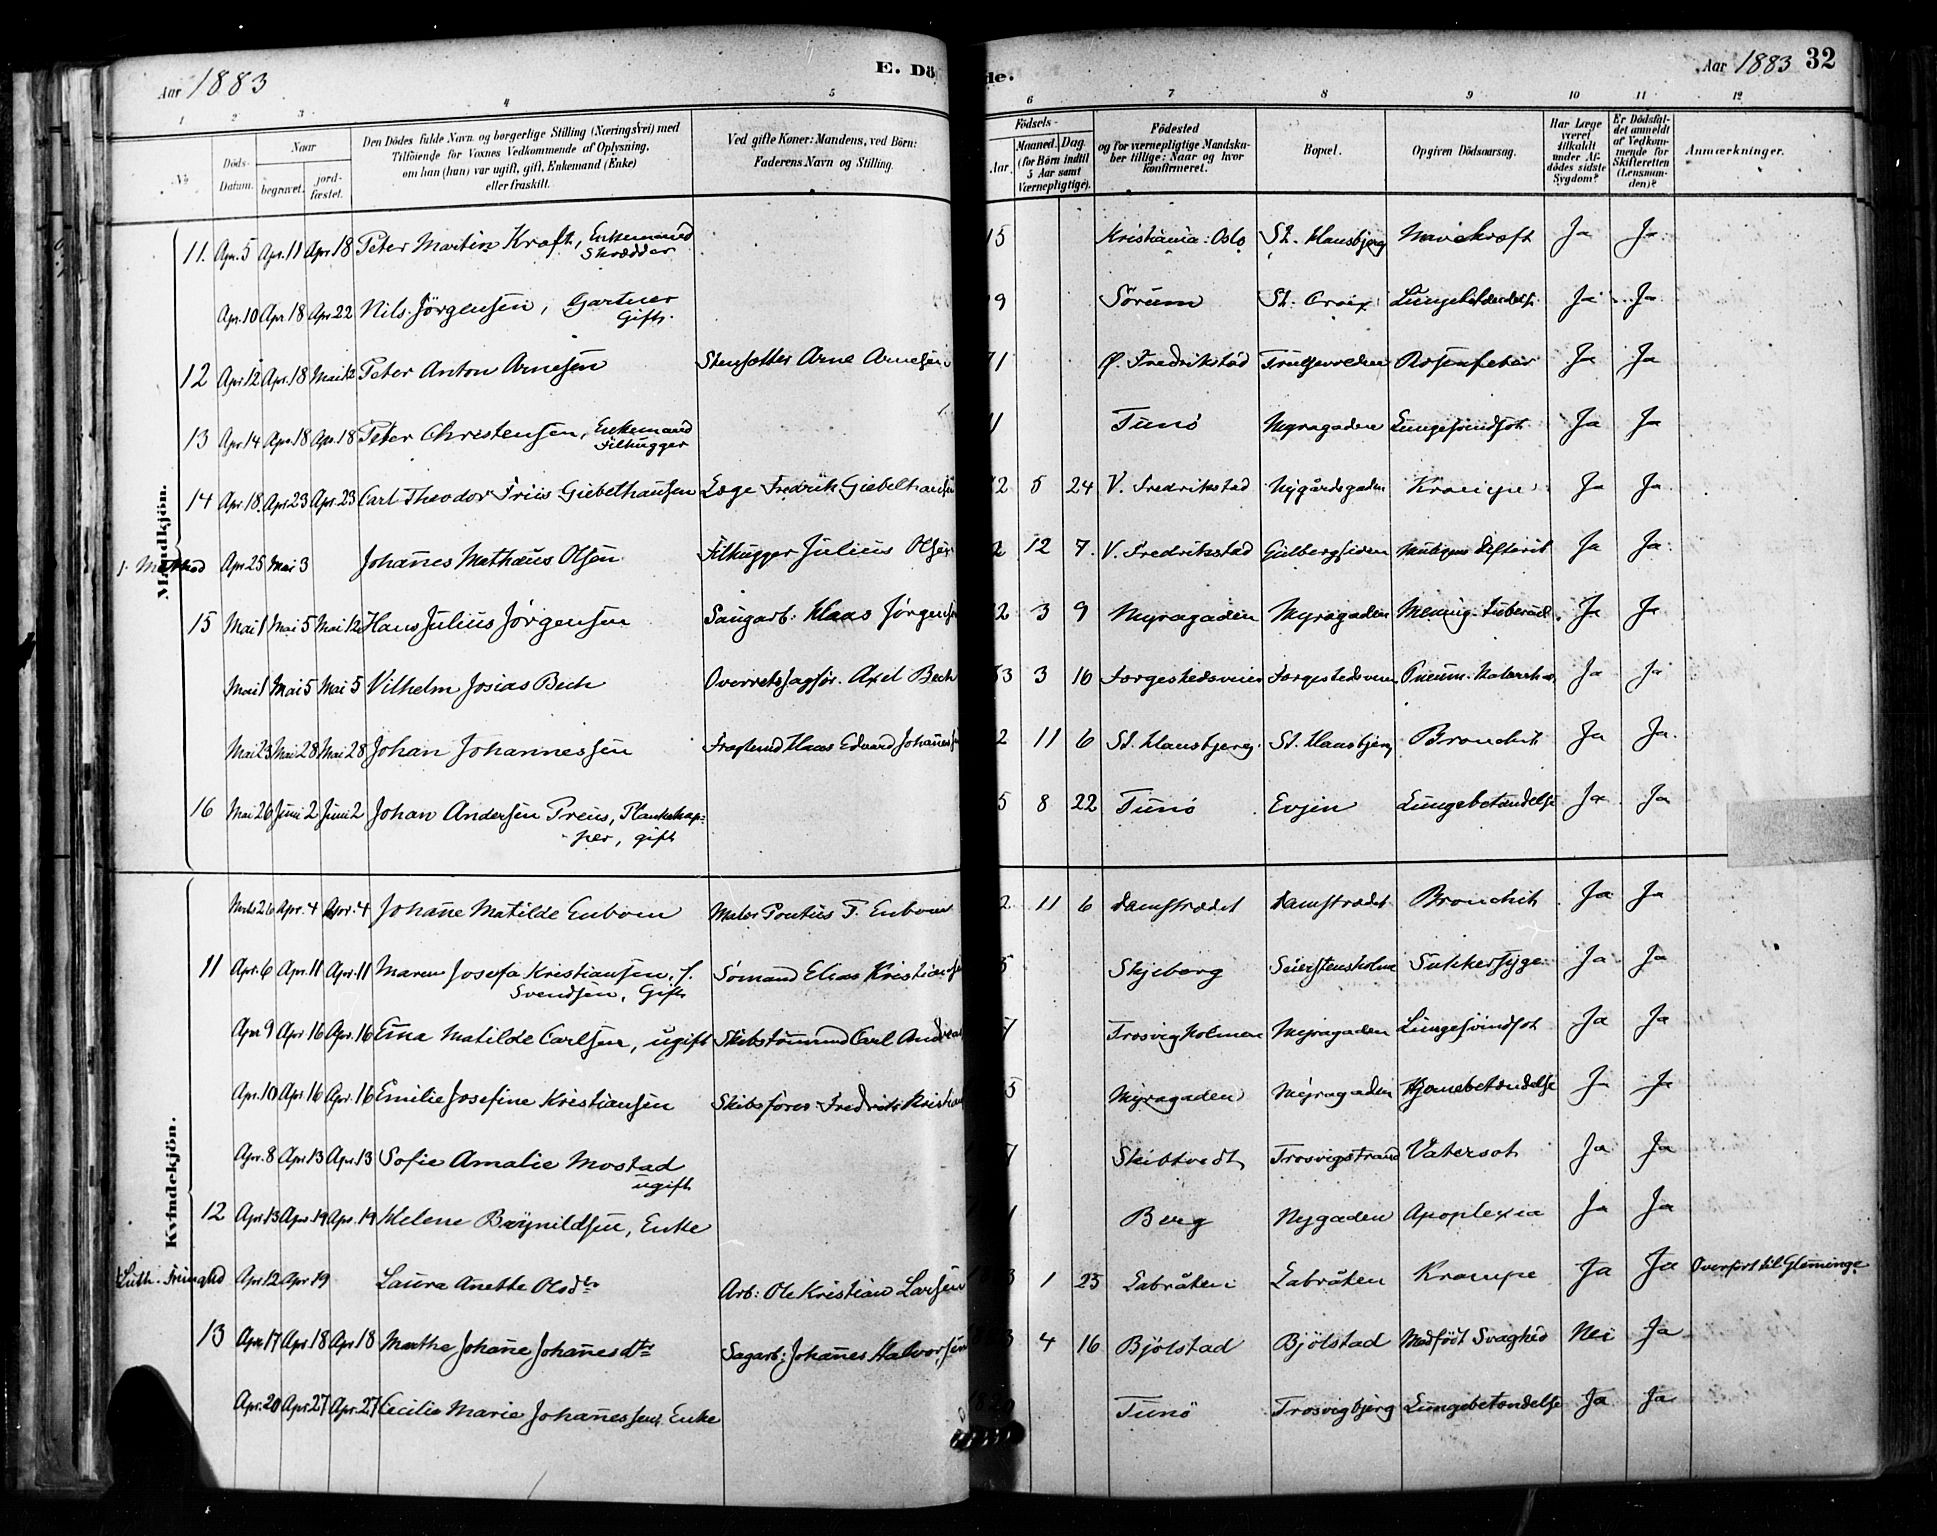 Aar 1883
E. Dö
de.
Aar 1883 32
1 2 3 4 5 6 7 8 9 10 11 12
No
Döds-Datum.
Naar
begravet.
jord-fæstet.
Den Dödes fulde Navn og borgerlige Stilling (Næringsvei) med
Tilföiende for Voxnes Vedkommende af Oplysning,
om han (hun) var ugift, gift, Enkemand (Enke)
eller fraskilt.
Ved gifte Koner: Mandens, ved Börn:
Faderens Navn og Stilling.
Födsels-
Aar.
Maaned. Dag.
(for Børn indtil
5 Aar samt
Værnepligtige).
Födested
og for værnepligtige Mandska-
ber tillige: Naar og hvor
konfirmeret.
Bopæl.
Opgiven Dödsaarsag.
Har Læge
været
tilkaldt
under Af-
dödes sidste
Sygdom?
Er Dödsfal-
det anmeldt
af Vedkom-
mende for
Skifteretten
(Lensman-
den)?
Anmærkninger.
Mandkjön.
11. Apr. 5 Apr. 11 Apr. 18 Peter Martin Kraft, Enkemand Skrædder 5 Kristiania: Oslo St. Hansbjerg Mavekræft Ja Ja
Apr. 10 Apr. 18 Apr. 22 Nils Jörgensen, Gartner Gift. 9 Sörum St. Croix Lungebetændelse Ja Ja
12 Apr. 12 Apr. 18 Mai 12 Peter Anton Arnesen Stensætter Arne Arnesen 71 Ø. Fredrikstad Rosenfeber Ja Ja
13 Apr. 14 Apr. 18 Apr. 18 Peter Christensen, Enkemand Filhugger 1 Tunö Myragaden Lungesvindsot Ja Ja
14 Apr. 18. Apr. 23 Apr. 23 Carl Theodor Friis Giebelhausen Læge Fredrik Giebelhausen 2 5 24 V. Fredrikstad Nygårdsgaden Krampe Ja Ja
Apr. 25 Mai 3 Johanes Mathæus Olsen Filhugger Julius Olsen 2 12 7. V. Fredrikstad Gulbergsiden Ja Ja
15 Mai 1 Mai 5 Mai 12 Hans Julius Jörgensen Saugarb: Klaas Jörgensen 2 3 9 Myragaden Myragaden Mening. Tubercul. Ja Ja
Mai 1 Mai 5 Mai 5 Vilhelm Josias Bech Overretssagför. Axel Bech 3 3 16 Færgestedsveien Færgestedsveien Pneum. Katarrhal Ja Ja
Mai 23 Mai 28 Mai 28 Johan Johannessen Hans Edvard Johanessen 2 11 6 St. Hansbjerg St. Hansbjerg Bronchit Ja Ja
16 Mai 26 Juni 2 Juni 2 Johan Andersen Preus, Plankekap-
per, gift 5 8 22 Tunö Evjen Lungebetændelse Ja Ja
Kvindekjön.
Marts 26 Apr. 4 Apr. 4 Johane Matilde Enbom Maler Pontus F. Enbom 2 11 6 Damstrædet Damstrædet Bronchit Ja Ja
11 Apr. 6 Apr. 11 Apr. 11 Maren Josefa Kristiansen, f.
Svendsen, Gift Sömand Elias Kristiansen 5 Skjeberg Seierstensholm Sukkersyge Ja Ja
Apr. 9 Apr. 16 Apr. 16 Ema Matilde Carlsen, ugift Skibstömmmd Carl Andreas 7 Trosvigholmen Myragaden Lungesvindsot Ja Ja
Apr. 10 Apr. 16 Apr. 16 Emilie Josefine Kristiansen Skibsförer Fredrik Kristian 5 Myragaden Myragaden Hjernebetændelse Ja Ja
Apr. 8 Apr. 13 Apr. 13 Sofie Amalie Mostad
ugift 7 Skibtvedt Trosvigstrand Vatersot Ja Ja
12 Apr. 13 Apr. 19 Apr. 19 Helene Brynildsen, Enke 1 Berg Nygaden Apoplexia Ja Ja
Luth. Apr. 12 Apr. 19 Laura Anette Olsdtr Arb: Ole Kristian Larsen 3 1 23 Labråten Labråten Krampe Ja Ja Overfört til Glemminge
13 Apr. 17 Apr. 18 Apr. 18 Marthe Johane Johanesdtr Sagarb: Johanes Halvorsen 3 4 16 Bjölstad Bjölstad Medfödt Svaghed Nei Ja
Apr. 20 Apr. 27 Apr. 27 Cecilie Marie Johanessen, Enke Tunö Trosvigbjerg Lungebetændelse Ja Ja